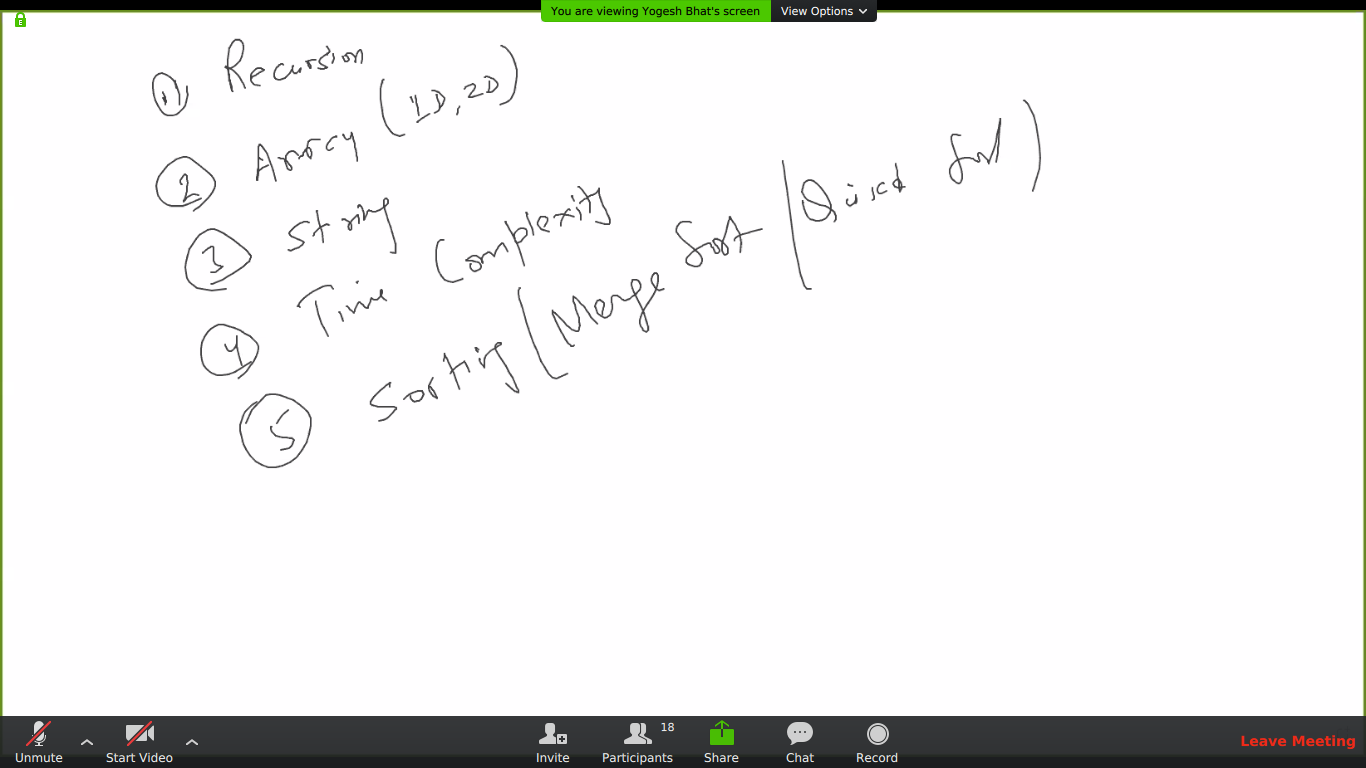 You are viewing Yogesh Bhat's screen View Options
1 Recursion
2 Array (1D, 2D)
3 String
4 Time Complexity
5 Sorting (Merge Sort (Quick Sort)
Unmute Start Video Invite Participants 18 Share Chat Record Leave Meeting